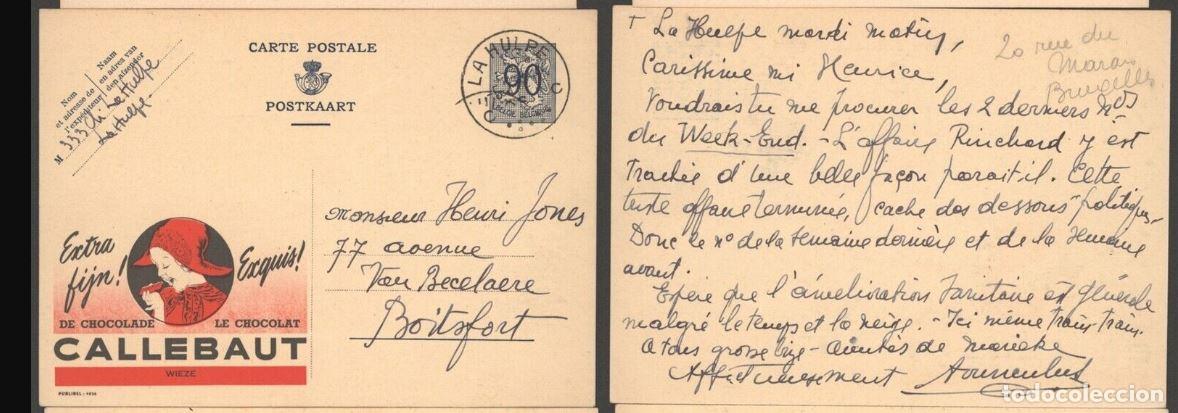 CARTE POSTALE
POSTKAART
Nom
et adresse de
l'expéditeur
Naam
en adres van
den afzender
M 333 La Hulpe
La Hulpe
LA HULPE
90
C C
BELGIE BELGIQUE
Monsieur Henri Jones
77 avenue
Van Becelaere
Boitsfort
Extra
fijn!
Exquis!
DE CHOCOLADE LE CHOCOLAT
CALLEBAUT
WIEZE
PUBLIBEL :
La Hulpe mardi matin,
20 rue du
Marais
Bruxelles
Carissime mi Henrice,
Voudrais tu me procurer les 2 derniers Nos
du Week-End. - L'affaire Rinchard y est
traitée d'une belle façon parait il. Cette
affaire terminée, cache des dessous "politiques"
Donc le n° de la semaine dernière et de la semaine
avant.
Espère que l'amélioration sanitaire est générale
malgré le temps et la neige. - Ici même train train.
A tous grosse bize - Amitiés de Marieke
Affectueusement
todocoleccion